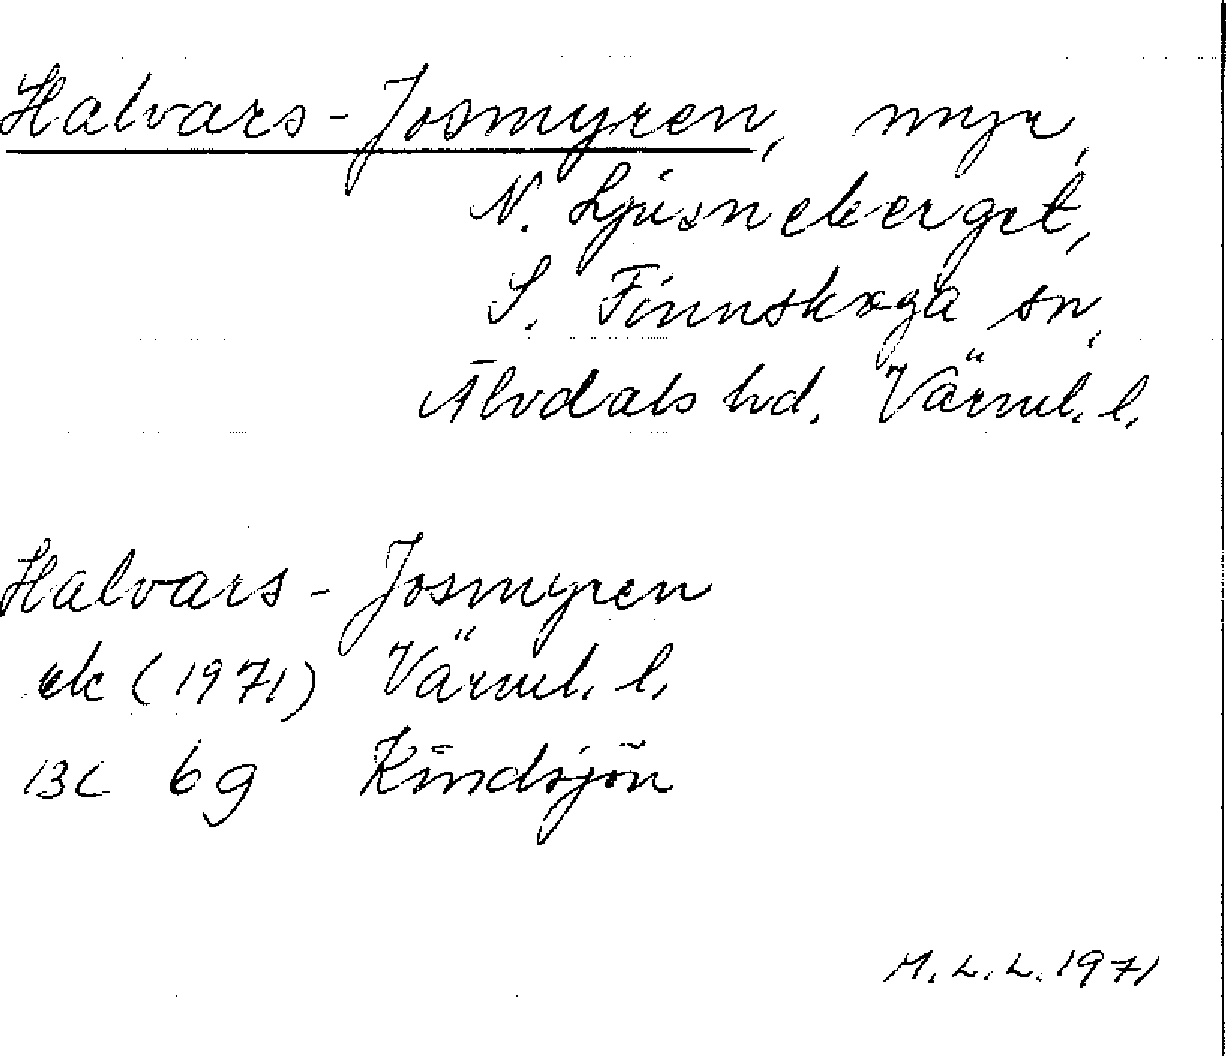 Halvars-Josmyren, myr,
N. Ljusneberget,
S. Finnskoga sn,
Älvdals hd. Värml. l.
Halvars-Josmyren
ek (1971) Värml. l.
13C 6g Kindsjön
M.L.L. 1971